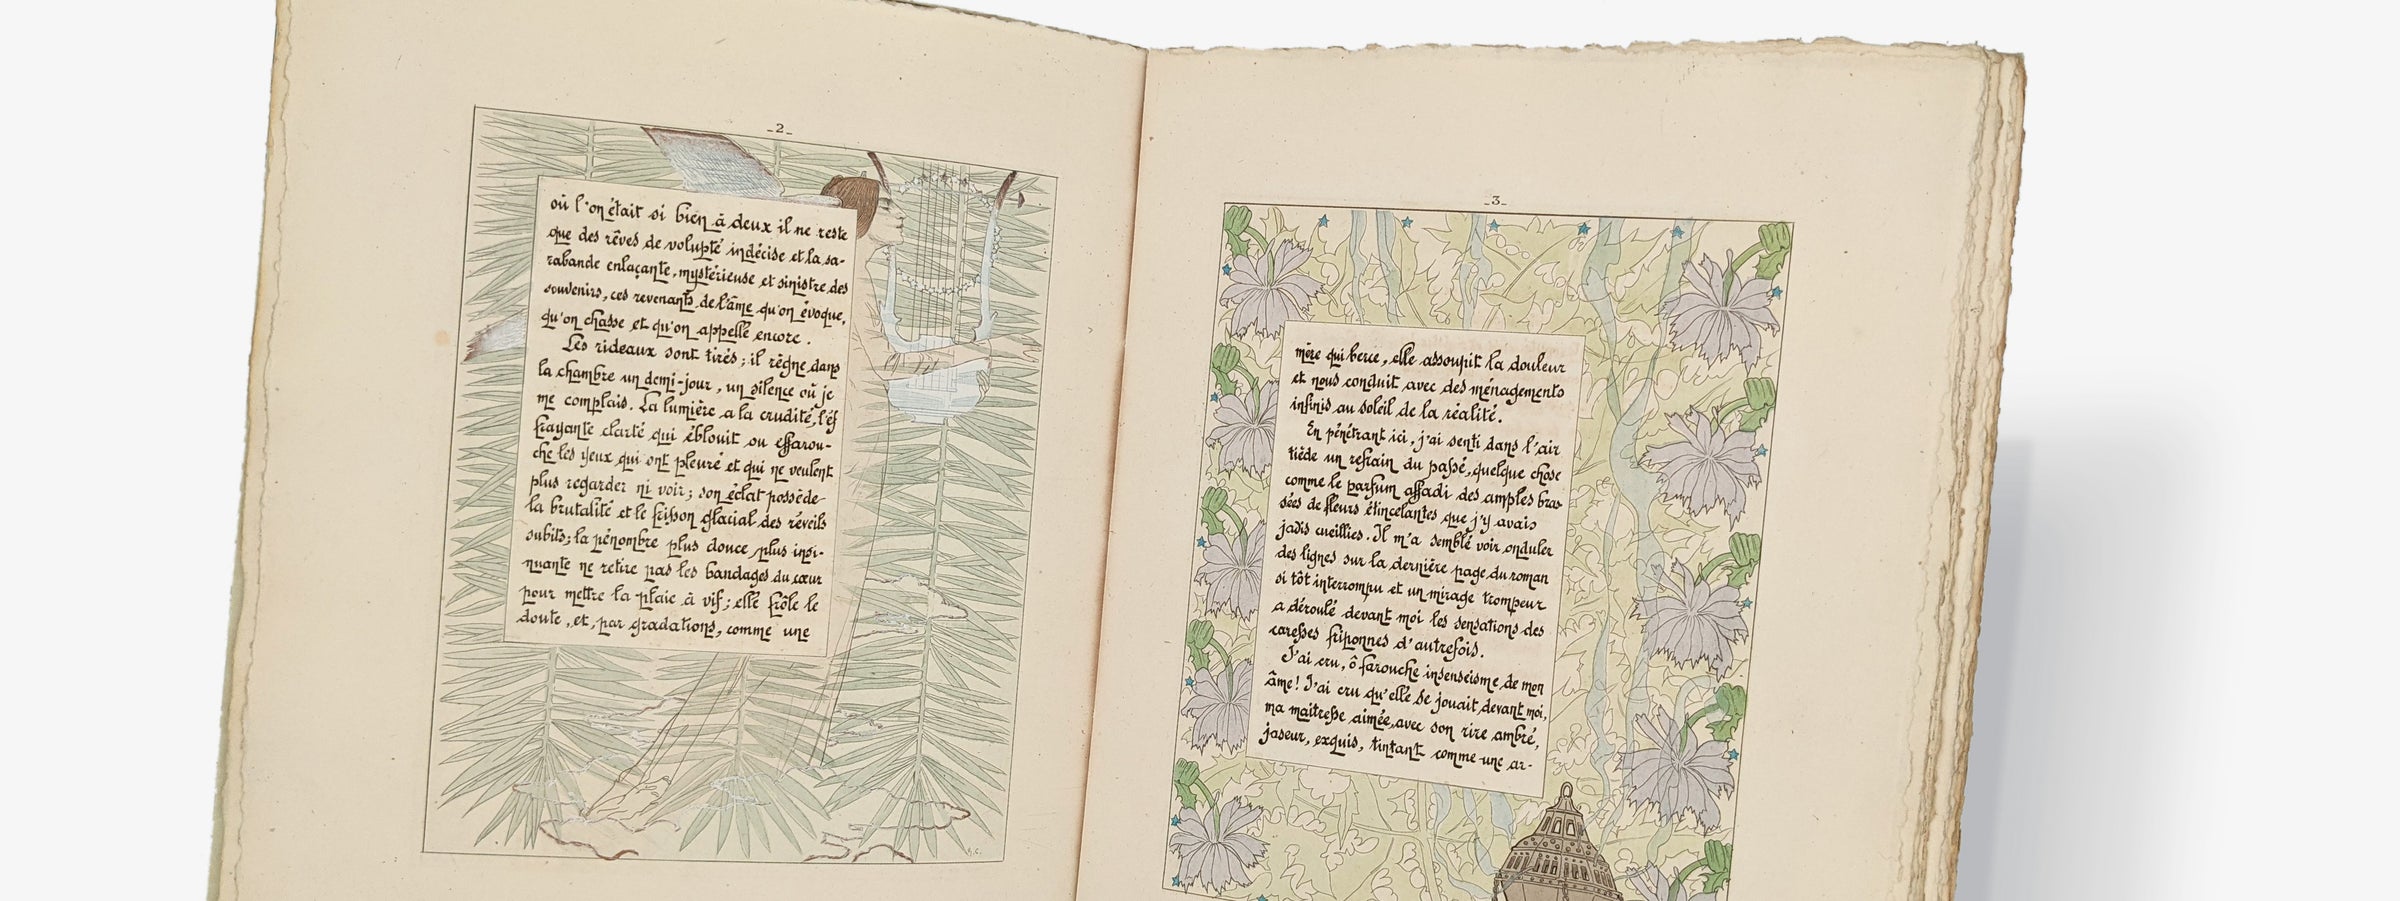 _2_
où l'on était si bien à deux il ne reste
que des rêves de volupté indécise et la sa-
rabande enlaçante, mystérieuse et sinistre des
souvenirs, ces revenants de l'âme qu'on évoque,
qu'on chasse et qu'on appelle encore.
Les rideaux sont tirés; il règne dans
la chambre un demi-jour, un silence où je
me complais. La lumière a la crudité, l'ef
frayante clarté qui éblouit ou effarou-
che les yeux qui ont pleuré et qui ne veulent
plus regarder ni voir; son éclat possède
la brutalité et le frisson glacial des réveils
subits; la pénombre plus douce, plus insi-
nuante ne retire pas les bandages du cœur
pour mettre la plaie à vif; elle frôle le
doute, et, par gradations, comme une
_3_
mère qui berce, elle assoupit la douleur
et nous conduit avec des ménagements
infinis au soleil de la réalité.
En pénétrant ici, j'ai senti dans l'air
tiède un refrain du passé, quelque chose
comme le parfum affadi des amples bras-
sées de fleurs étincelantes que j'y avais
jadis cueillies. Il m'a semblé voir onduler
des lignes sur la dernière page du roman
si tôt interrompu et un mirage trompeur
a déroulé devant moi les sensations des
caresses friponnes d'autrefois.
J'ai cru, ô farouche insenséisme de mon
âme! J'ai cru qu'elle se jouait devant moi,
ma maîtresse aimée, avec son rire ambré,
jaseur, exquis, tintant comme une ar-